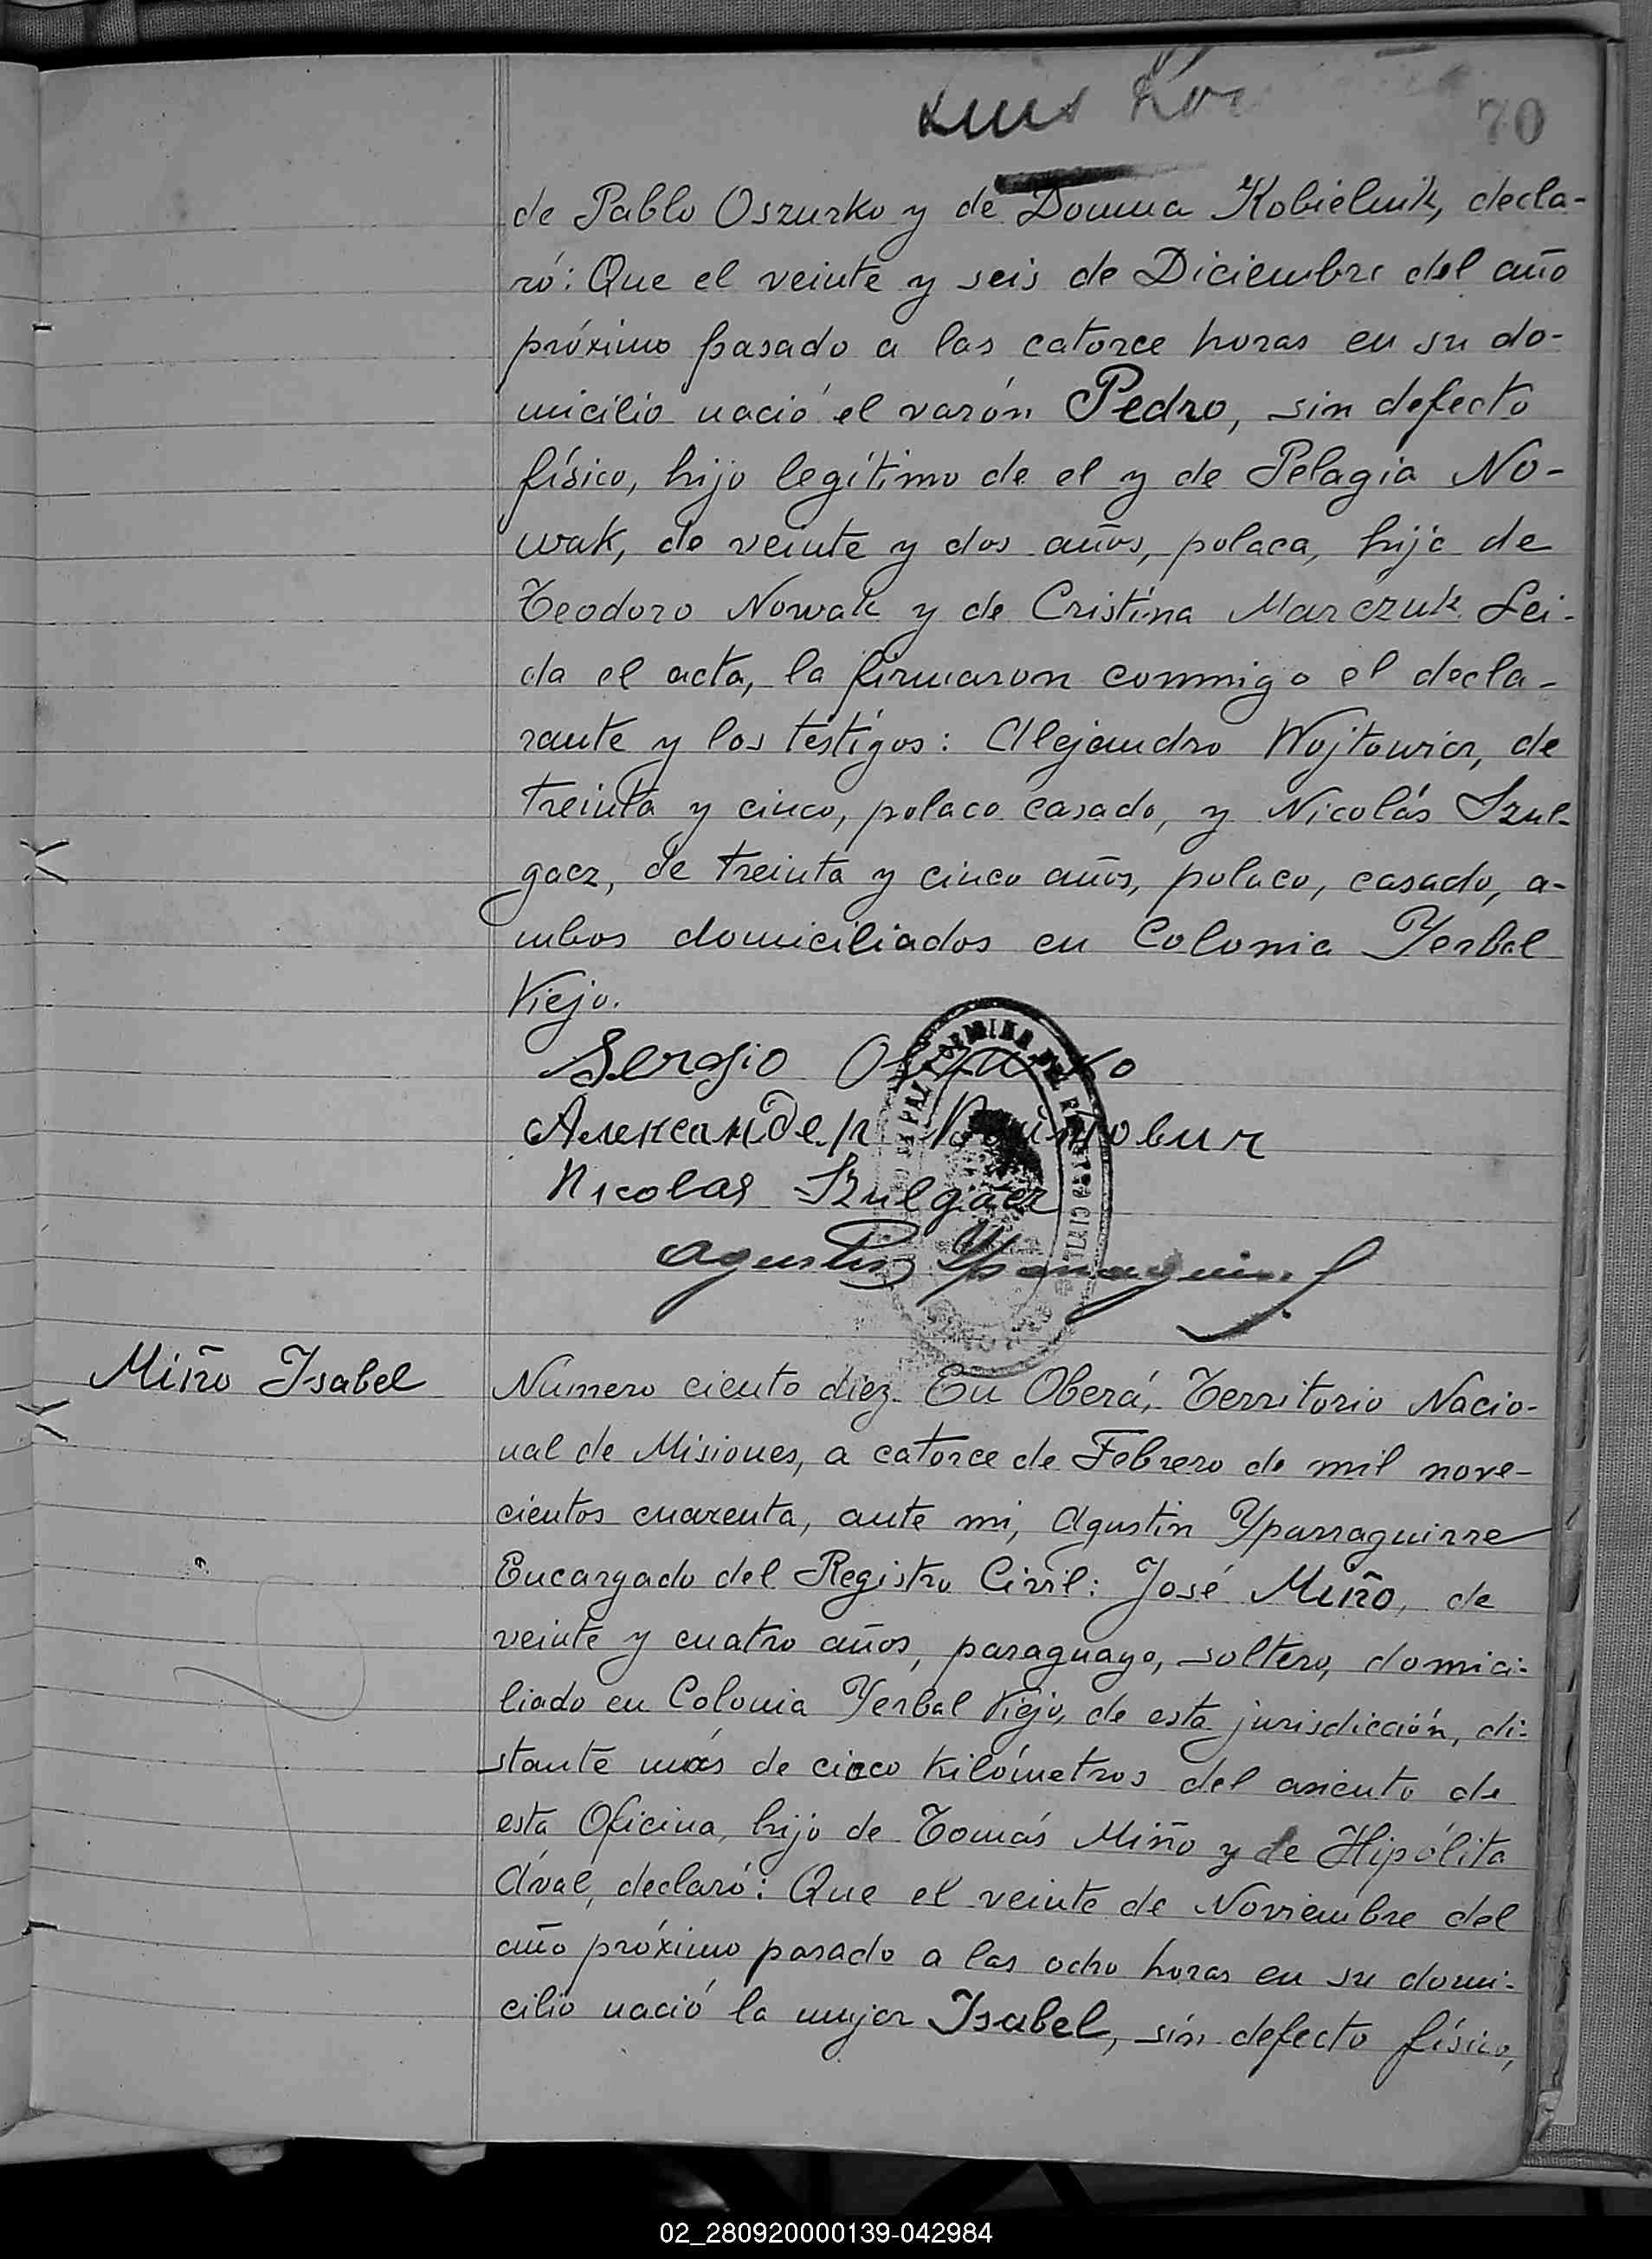 Luis
70
de Pablo Oszurko y de Domna Kobielnik, decla-
ró: Que el veinte y seis de Diciembre del año
próximo pasado a las catorce horas en su do-
micilio nació el varón Pedro, sin defecto
físico, hijo legítimo de el y de Pelagia No-
wak, de veinte y dos años, polaca, hija de
Teodoro Nowak y de Cristina Marczuk. Lei-
da el acta, la firmaron conmigo el decla-
rante y los testigos: Alejandro Wojtowicz, de
treinta y cinco, polaco casado, y Nicolás Szul-
gacz, de treinta y cinco años, polaco, casado, a-
mbos domiciliados en Colonia Yerbal
Viejo.
Sergio Oszurko
Александер Войтович
Nicolas Szulgacz
Agustin Yparraguirre
Miño Isabel
Número ciento diez. En Oberá, Territorio Nacio-
nal de Misiones, a catorce de Febrero de mil nove-
cientos cuarenta, ante mi, Agustin Yparraguirre
Encargado del Registro Civil: José Miño, de
veinte y cuatro años, paraguayo, soltero, domici-
liado en Colonia Yerbal Viejo, de esta jurisdicción, di-
stante más de cinco kilómetros del asiento de
esta Oficina, hijo de Tomás Miño y de Hipólita
Ával, declaró: Que el veinte de Noviembre del
año próximo pasado a las ocho horas en su domi-
cilio nació la mujer Isabel, sin defecto físico,
02_280920000139-042984